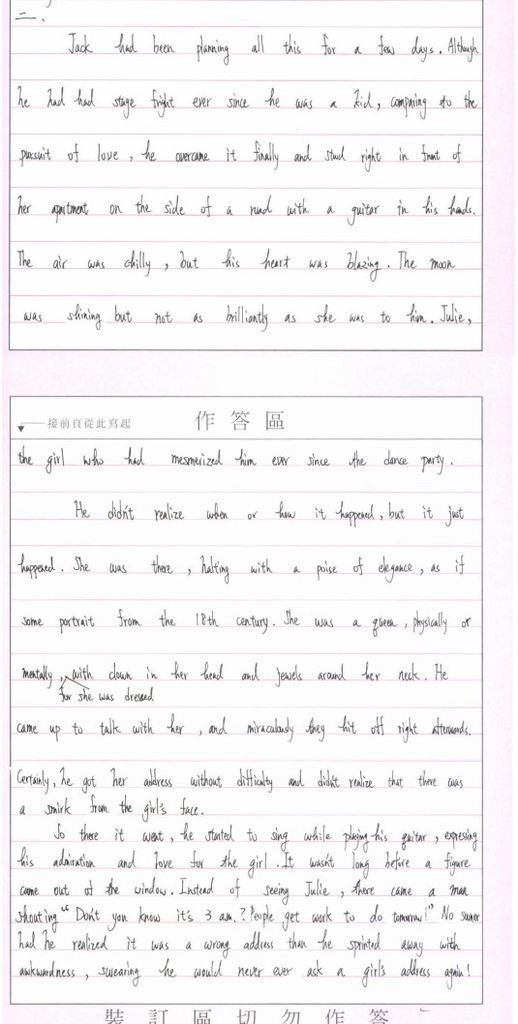 二、
Jack had been planning all this for a few days. Although
he had had stage fright ever since he was a kid, comparing to the
pursuit of love, he overcame it finally and stud right in front of
her apartment on the side of a road with a guitar in his hands.
The air was chilly, but his heart was blazing. The moon
was shining but not as brilliantly as she was to him. Julie,
接前頁從此寫起
作答區
the girl who had mesmerized him ever since the dance party.
He didn't realize when or how it happened, but it just
happened. She was there, halting with a poise of elegance, as if
some portrait from the 18th century. She was a queen, physically or
mentally, with clown in her head and jewels around her neck. He
for she was dressed
came up to talk with her, and miraculously they hit off right afterwards.
Certainly, he got her address without difficulty and didn't realize that there was
a smirk from the girl's face.
So there it went, he started to sing while playing his guitar, expressing
his admiration and love for the girl. It wasn't long before a figure
came out of the window. Instead of seeing Julie, there came a man
shouting "Don't you know it's 3 am.? People get work to do tomorrow!" No sooner
had he realized it was a wrong address than he sprinted away with
awkwardness, swearing he would never ever ask a girl's address again!
裝訂區切勿作答